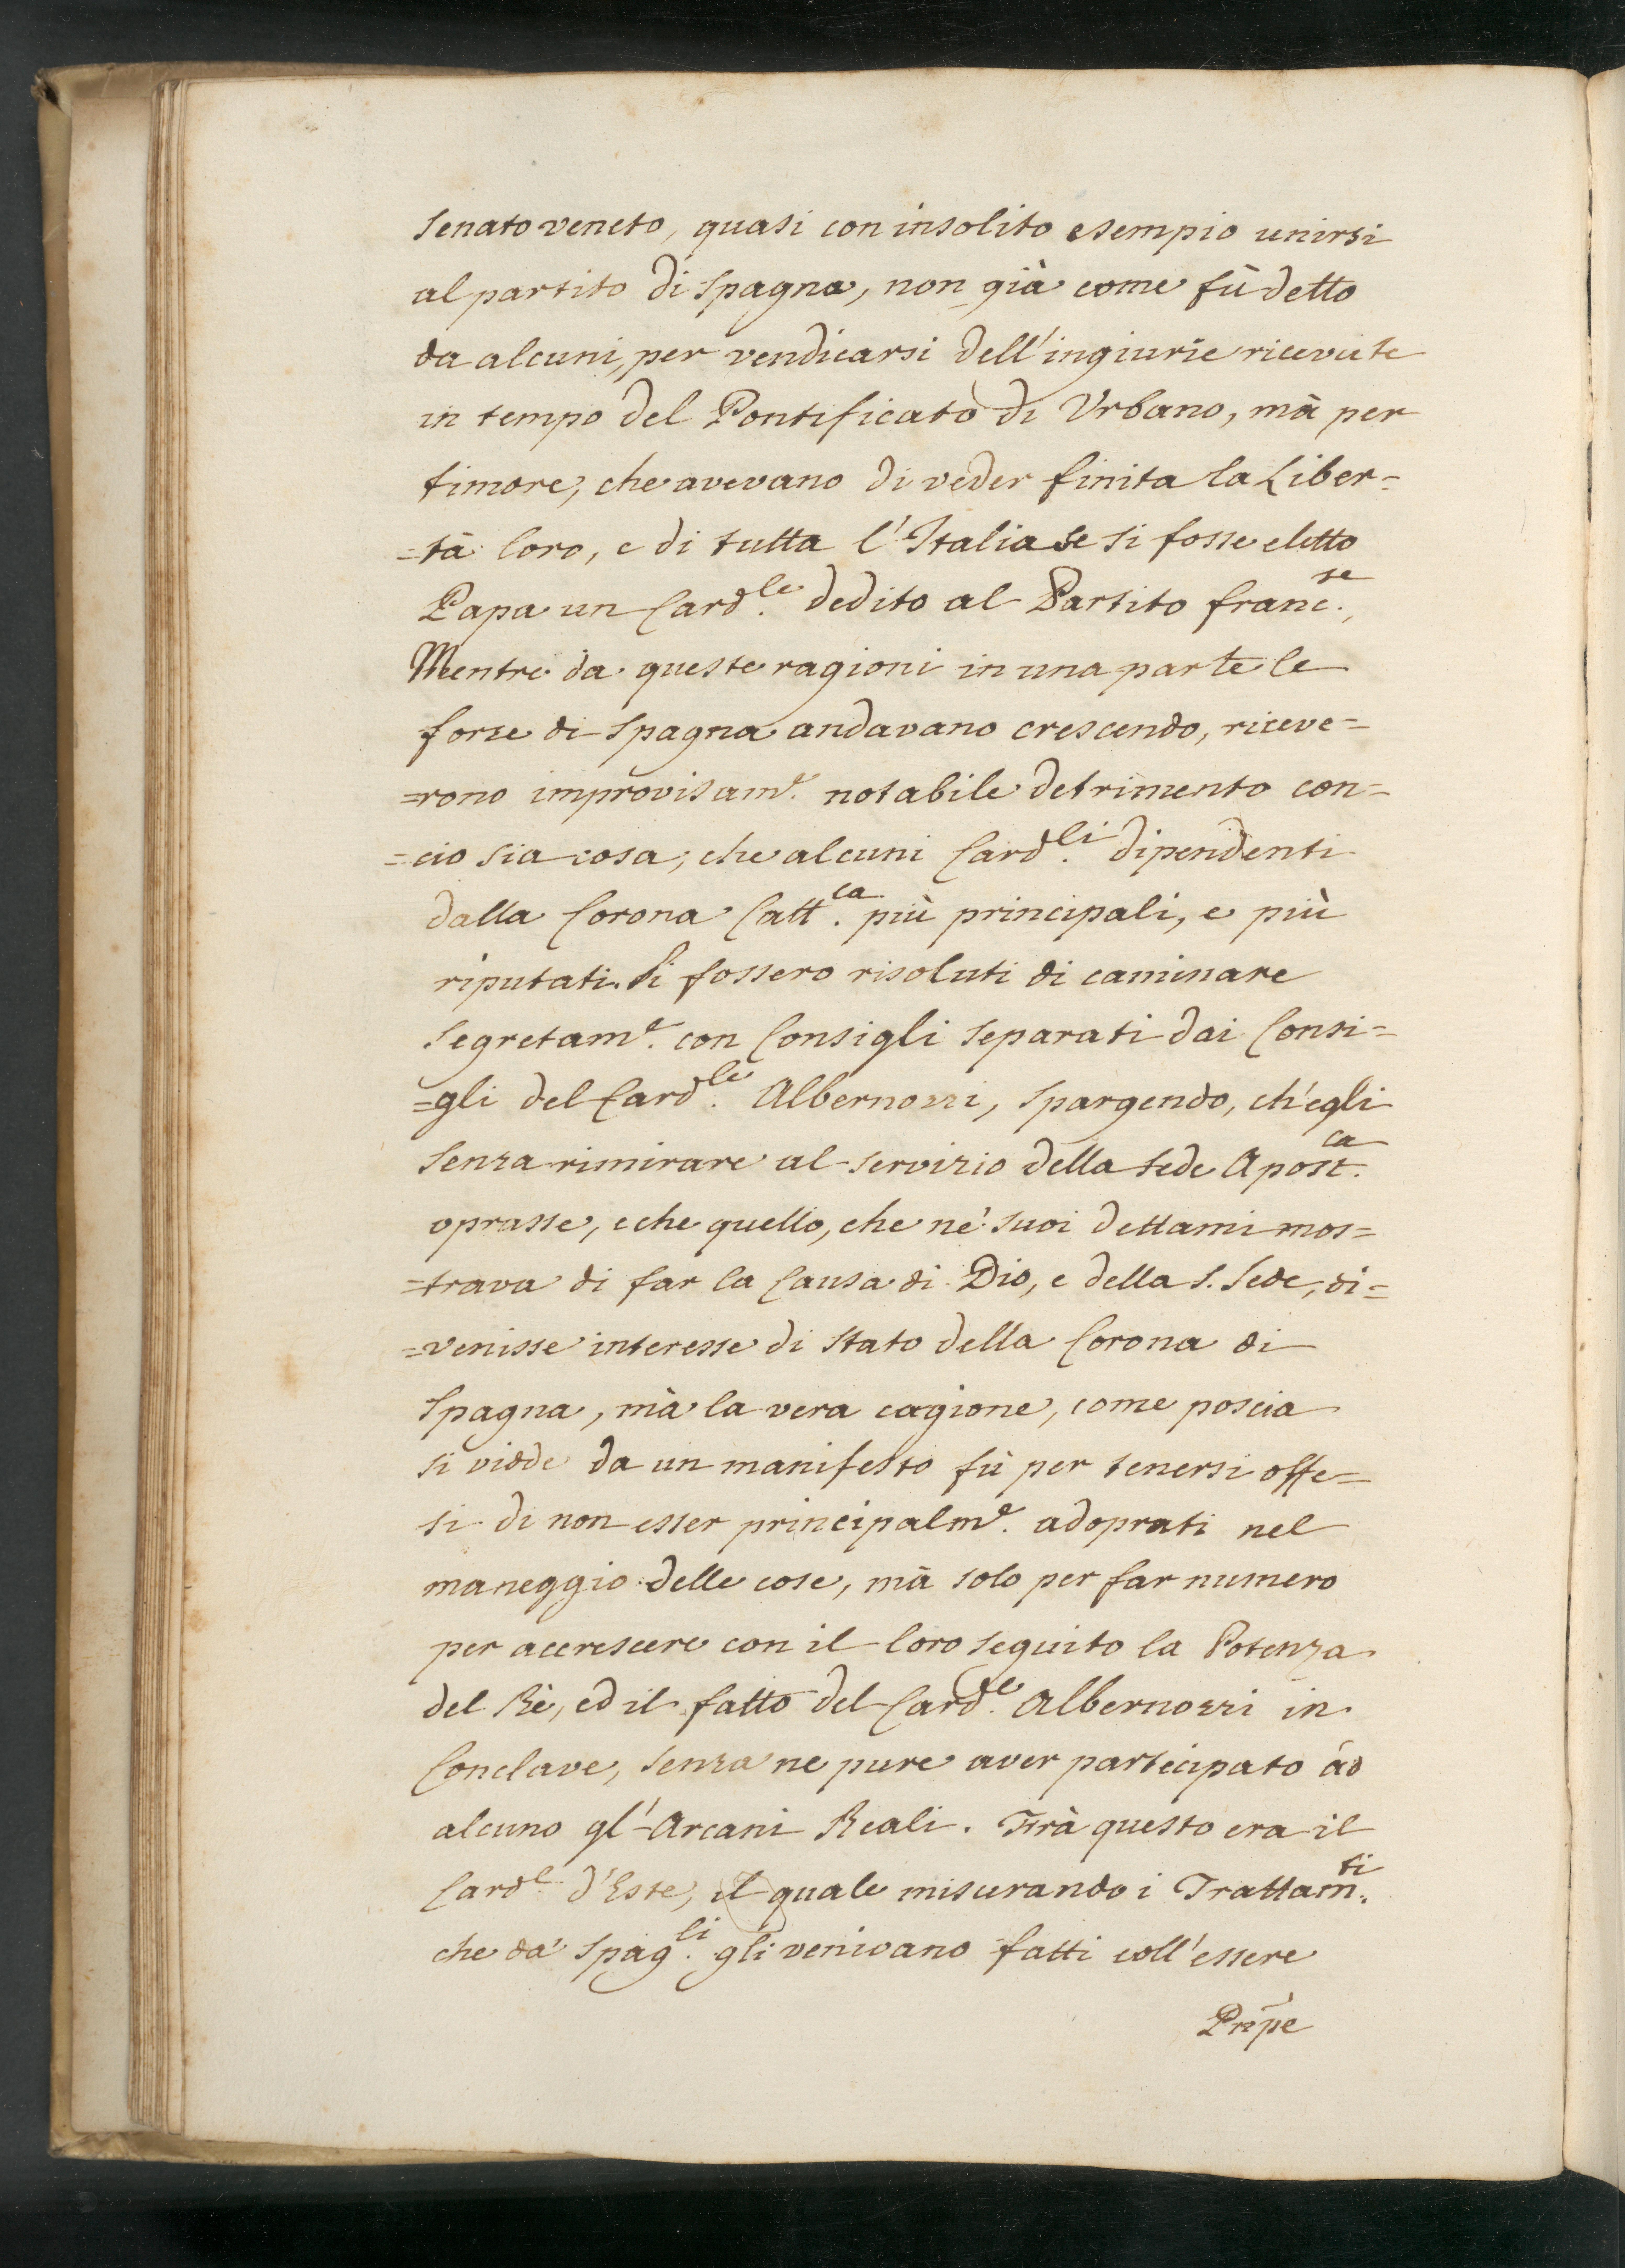 Senato veneto, quasi con insolito esempio unirsi
al partito di Spagna, non già come fù detto
da alcuni, per vendicarsi dell'ingiurie ricevute
in tempo del Pontificato di Urbano, mà per
timore, che avevano di veder finita la Liber=
=tà loro, e di tutta l'Italia se si fosse eletto
Papa un Card.le dedito al Partito franc.se,
Mentre da queste ragioni in una parte le
forze di Spagna andavano crescendo, riceve=
=rono improvisam.e notabile detrimento con=
=cio sia cosa, che alcuni Card.li dipendenti
dalla Corona Catt.ca più principali, e più
riputati si fossero risoluti di caminare
segretam.e con Consigli separati dai Consi=
=gli del Card.le Albernozzi, spargendo, ch'egli
senza rimirare al servizio della sede Apost.ca
oprasse, e che quello, che ne' suoi dettami mos=
=trava di far la Causa di Dio, e della S. Sede, di=
=venisse interesse di Stato della Corona di
Spagna, mà la vera cagione, come poscia
si vidde da un manifesto fù per tenersi offe=
si di non esser principalm.e adoprati nel
maneggio delle cose, mà solo per far numero
per accrescere con il loro seguito la Potenza
del Rè, ed il fatto del Card.le Albernozzi in
Conclave, senza ne pure aver participato ad
alcuno gl'Arcani Reali. Frà questo era il
Card.l d'Este, il quale misurando i Trattam.ti
che da' Spag.li gli venivano fatti coll'essere
Prīpe